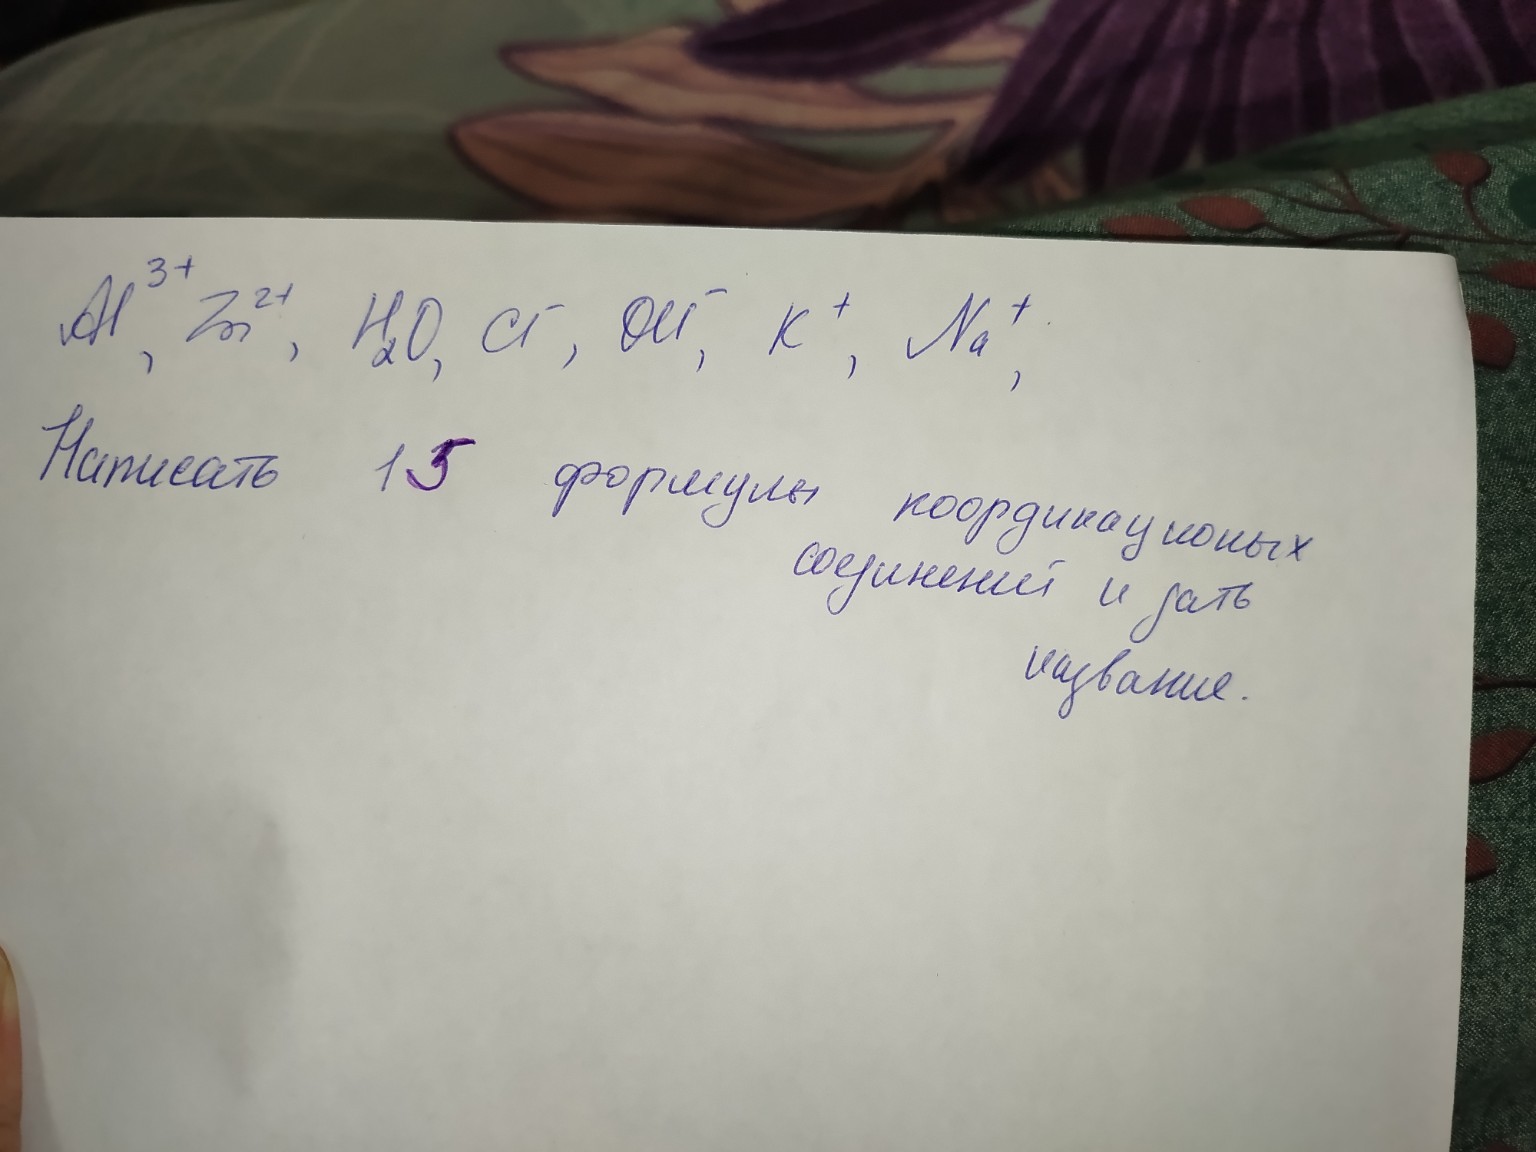 Al³⁺, Zn²⁺, H₂O, Cl⁻, OH⁻, K⁺, Na⁺,
Написать 15 формулы координационых
соединений и дать
название.